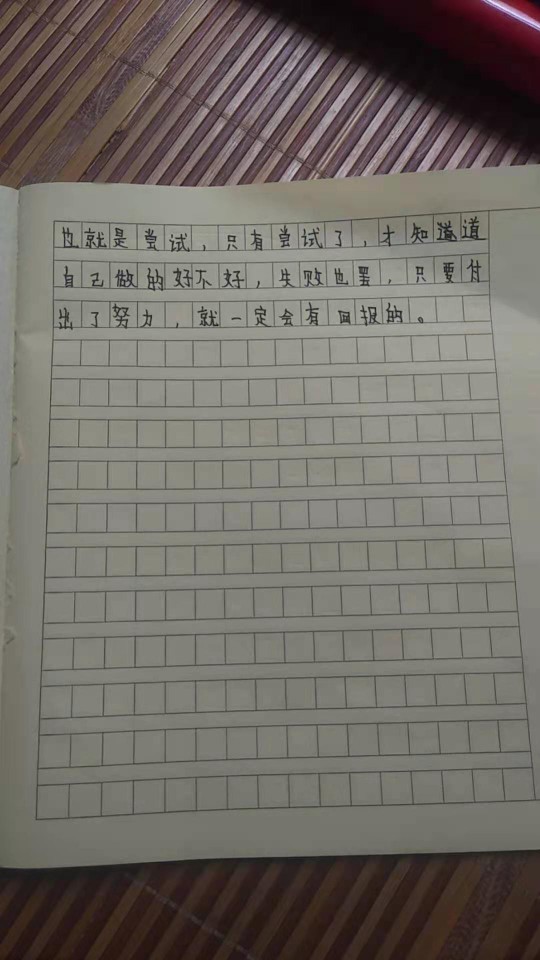 也就是尝试，只有尝试了，才知道道
自己做的好不好，失败也罢，只要付
出了努力，就一定会有回报的。